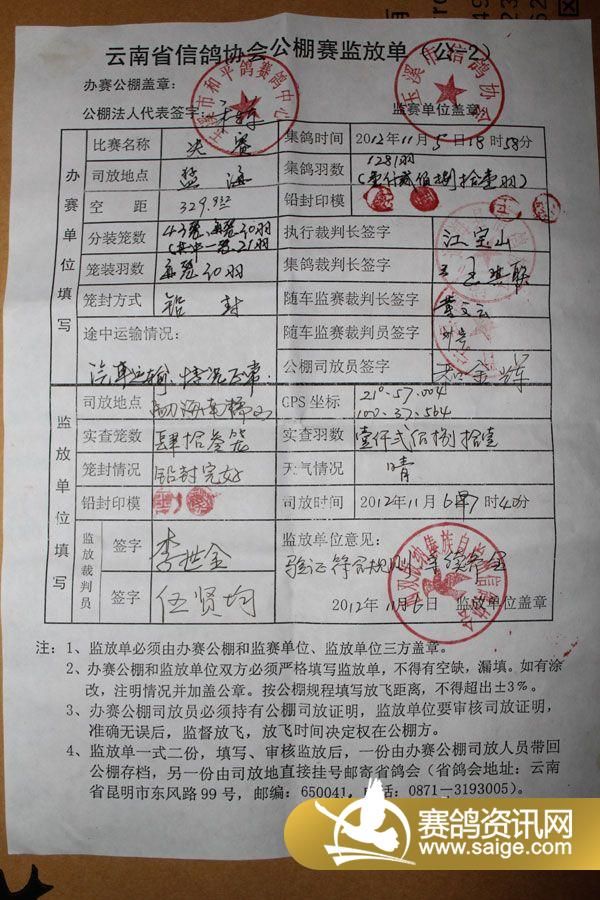 云南省信鸽协会公棚赛监放单（公-2）
办赛公棚盖章：
公棚法人代表签字：
监赛单位盖章
玉溪市和平鸽赛鸽中心
玉溪市信鸽协会
办赛单位填写
比赛名称 决赛 集鸽时间 2012年11月5日18时58分
司放地点 勐海 集鸽羽数 1281羽
(壹仟贰佰捌拾壹羽)
空距 329.9 铅封印模
分装笼数 43笼、每笼30羽
(其中一笼21羽) 执行裁判长签字 江宝山
笼装羽数 每笼30羽 集鸽裁判长签字
笼封方式 铅封 随车监赛裁判长签字
途中运输情况： 随车监赛裁判员签字
汽车运输、情况正常. 公棚司放员签字
监放单位填写
司放地点 CPS 坐标 21°.57.004
100.37.564
实查笼数 肆拾叁笼 实查羽数 壹仟贰佰捌拾壹
笼封情况 铅封完好 天气情况 晴
铅封印模 司放时间 2012年11月6日7时40分
监放裁判员
签字 李世金 监放单位意见：
验证符合规则，手续齐全
签字 伍贤均 2012年11月6日 监放单位盖章
注：1、监放单必须由办赛公棚和监赛单位、监放单位三方盖章。
2、办赛公棚和监放单位双方必须严格填写监放单，不得有空缺，漏填。如有涂
改，注明情况并加盖公章。按公棚规程填写放飞距离，不得超出±3%。
3、办赛公棚司放员必须持有公棚司放证明，监放单位要审核司放证明，
准确无误后，监督放飞，放飞时间决定权在公棚方。
4、监放单一式二份，填写、审核监放后，一份由办赛公棚司放人员带回
公棚存档，另一份由司放地直接挂号邮寄省鸽会（省鸽会地址：云南
省昆明市东风路99号，邮编：650041，电话：0871-3193005）。
赛鸽资讯网
www.saige.com